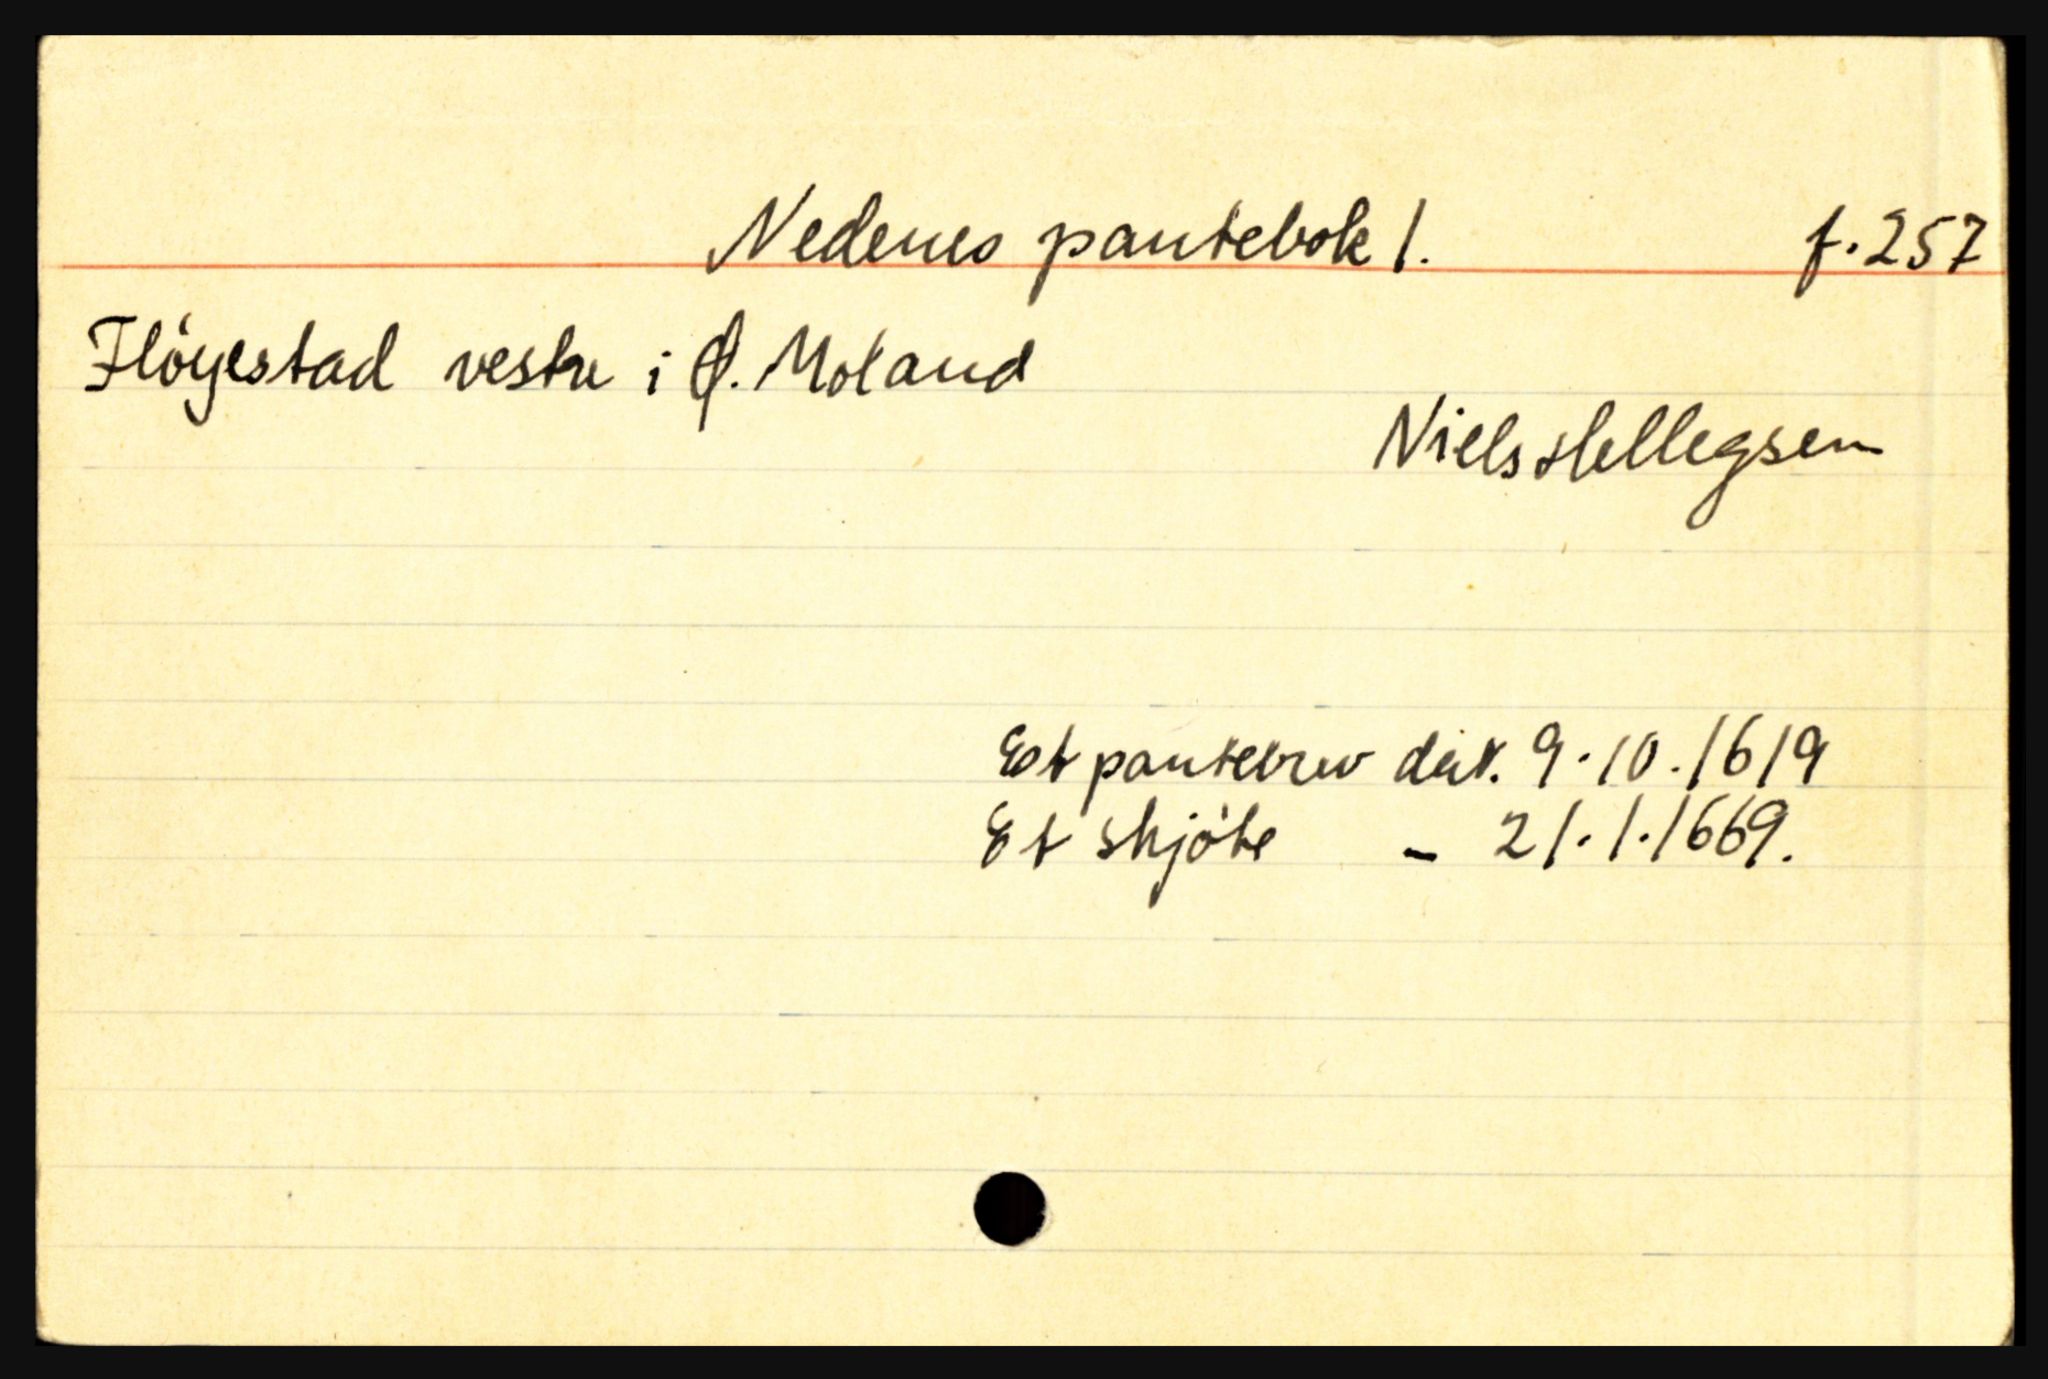 Nedenes pantebok 1. f. 257
Fløyestad vestre i Ø. Moland
Niels Hellegsen
Et pantebrev dat. 9.10.1619
Et skjøte - 21.1.1669.